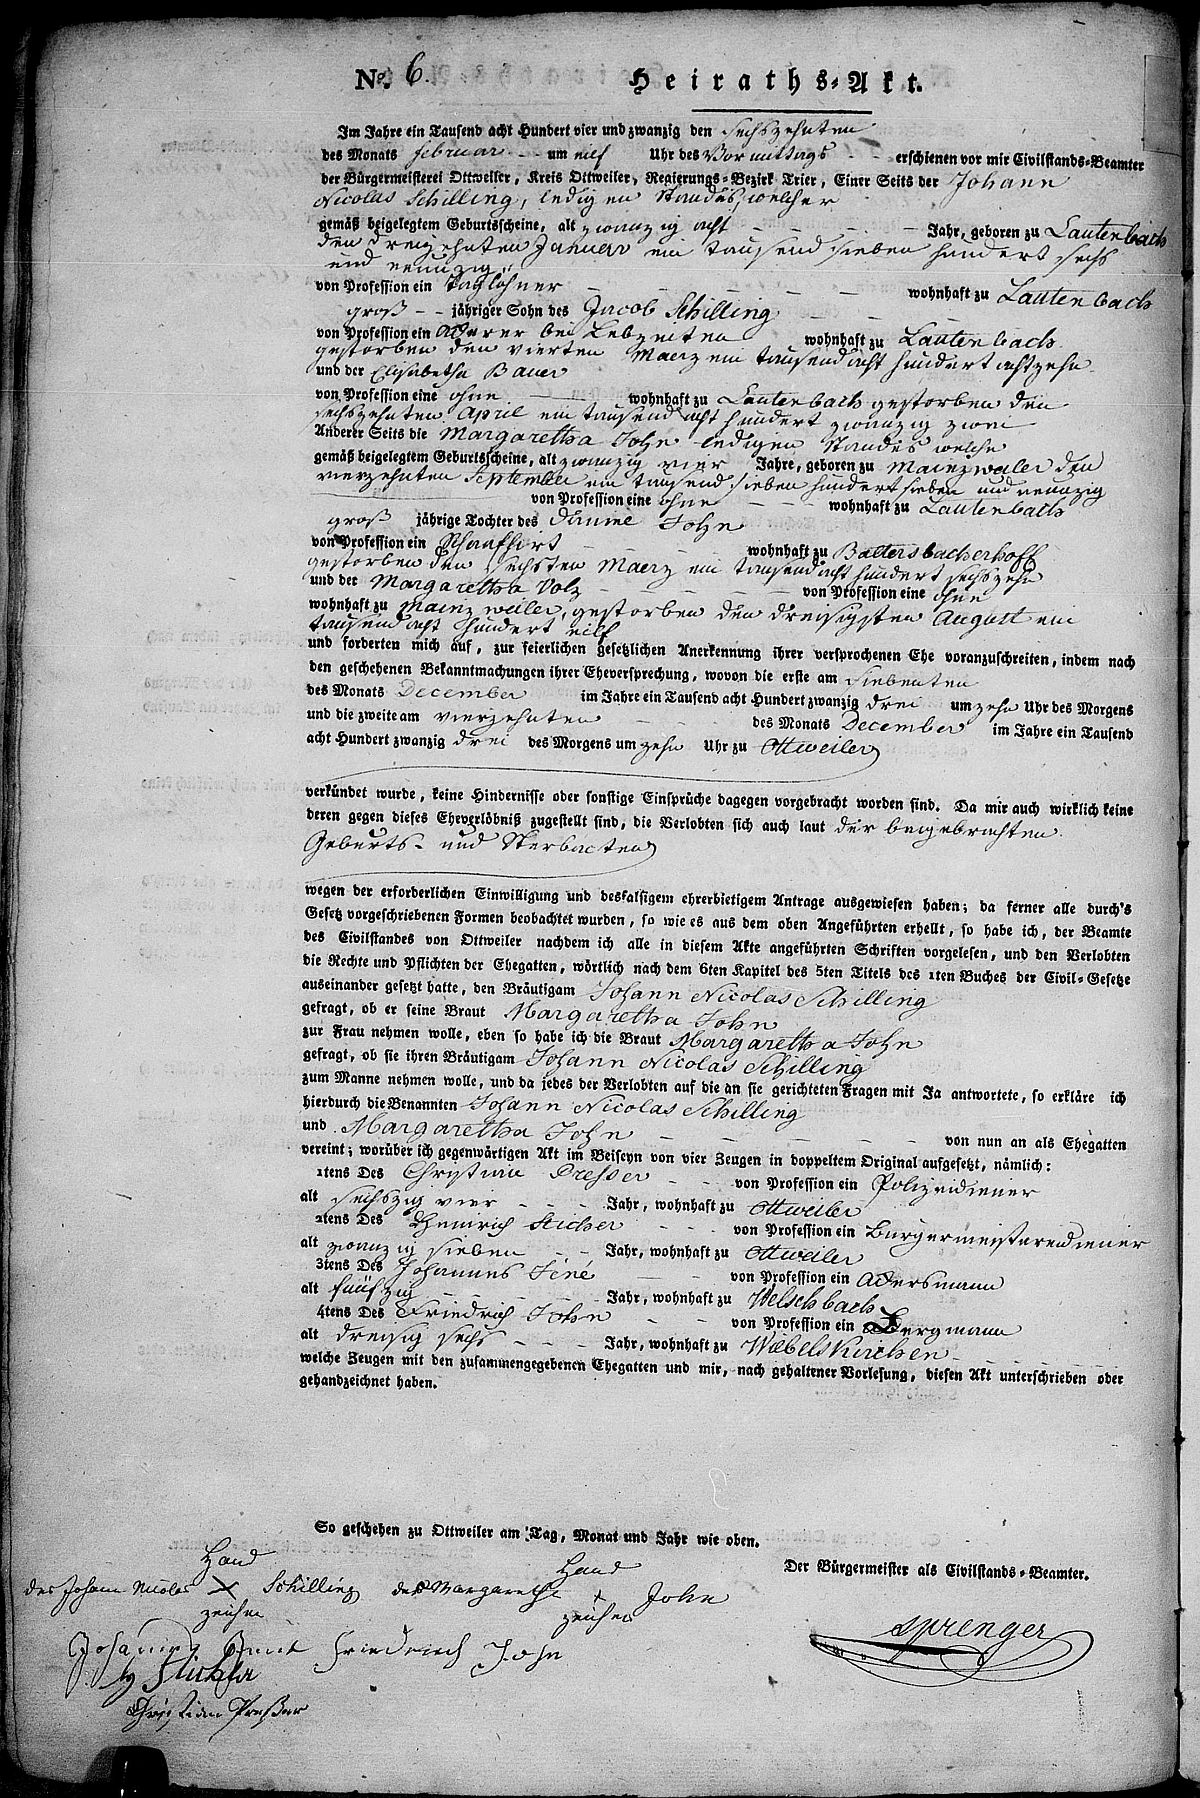 No. 6. Heiraths-Akt.
Im Jahre ein Tausend acht Hundert vier und zwanzig den sechszehnten
des Monats februar - - um eilf Uhr des Vormittags - - erschienen vor mir Civilstands-Beamter
der Bürgermeisterei Ottweiler, Kreis Ottweiler, Regierungs-Bezirk Trier, Einer Seits der Johann
Nicolas Schilling, ledigen Standes, welcher
gemäß beigelegtem Geburtsscheine, alt zwanzig acht - - - - Jahr, geboren zu Lautenbach
den dreizehnten Januar ein tausend sieben hundert sechs
und neunzig
von Profession ein Taglöhner - - - - - wohnhaft zu Lautenbach
groß - - jähriger Sohn des Jacob Schilling - - - -
von Profession ein Ackerer bei Lebzeiten wohnhaft zu Lautenbach
gestorben den vierten Maerz ein tausend acht hundert achtzehn
und der Elisabetha Bauer
von Profession eine ohne - - - wohnhaft zu Lautenbach gestorben den
sechszehnten April ein tausend acht hundert zwanzig zwei
Anderer Seits die Margaretha John ledigen Standes welche
gemäß beigelegtem Geburtsscheine, alt zwanzig vier Jahre, geboren zu Mainzweiler den
vierzehnten September ein tausend sieben hundert sieben und neunzig
von Profession eine ohne - - - wohnhaft zu Lautenbach
groß jährige Tochter des John
von Profession ein Schaafhirt - - - wohnhaft zu Baltersbacherhoff
gestorben den sechsten Maerz ein tausend acht hundert sechszehn
und der Margaretha Volz - - - - von Profession eine ohne
wohnhaft zu Mainzweiler, gestorben den dreisigsten August ein
tausend acht hundert eilf
und forderten mich auf, zur feierlichen gesetzlichen Anerkennung ihrer versprochenen Ehe voranzuschreiten, indem nach
den geschehenen Bekanntmachungen ihrer Eheversprechung, wovon die erste am siebenten
des Monats December im Jahre ein Tausend acht Hundert zwanzig drei um zehn Uhr des Morgens
und die zweite am vierzehnten - - - des Monats December im Jahre ein Tausend
acht Hundert zwanzig drei des Morgens um zehn Uhr zu Ottweiler
verkündet wurde, keine Hindernisse oder sonstige Einsprüche dagegen vorgebracht worden sind. Da mir auch wirklich keine
deren gegen dieses Eheverlöbniß zugestellt sind, die Verlobten sich auch laut der beigebrachten
Geburts- und Sterbacten
wegen der erforderlichen Einwilligung und desfalsigem ehrerbietigem Antrage ausgewiesen haben; da ferner alle durch's
Gesetz vorgeschriebenen Formen beobachtet wurden, so wie es aus dem oben Angeführten erhellt, so habe ich, der Beamte
des Civilstandes von Ottweiler nachdem ich alle in diesem Akte angeführten Schriften vorgelesen, und den Verlobten
die Rechte und Pflichten der Ehegatten, wörtlich nach dem 6ten Kapitel des 5ten Titels des 1ten Buches der Civil-Gesetze
auseinander gesetzt hatte, den Bräutigam Johann Nicolas Schilling
gefragt, ob er seine Braut Margaretha John
zur Frau nehmen wolle, eben so habe ich die Braut Margaretha John
gefragt, ob sie ihren Bräutigam Johann Nicolas Schilling
zum Manne nehmen wolle, und da jedes der Verlobten auf die an sie gerichteten Fragen mit Ja antwortete, so erkläre ich
hierdurch die Benannten Johann Nicolas Schilling
und Margaretha John - - - - - - von nun an als Ehegatten
vereint; worüber ich gegenwärtigen Akt im Beiseyn von vier Zeugen in doppeltem Original aufgesetzt, nämlich:
1tens Des Christian Presser - - von Profession ein Polizeidiener
alt sechszig vier - - - Jahr, wohnhaft zu Ottweiler
2tens Des Heinrich - - von Profession ein Bürgermeistereidiener
alt zwanzig sieben - - Jahr, wohnhaft zu Ottweiler
3tens Des Johannes - - von Profession ein Ackersmann
alt fünfzig - - - - Jahr, wohnhaft zu Welschbach
4tens Des Friedrich John - - von Profession ein Bergmann
alt dreisig sechs - - - Jahr, wohnhaft zu Wiebelskirchen
welche Zeugen mit den zusammengegebenen Ehegatten und mir, nach gehaltener Vorlesung, diesen Akt unterschrieben oder
gehandzeichnet haben.
So geschehen zu Ottweiler am Tag, Monat und Jahr wie oben.
Der Bürgermeister als Civilstands-Beamter.
Hand
des Johann Nicolas X Schilling
zeichen
Hand
der Margaretha x John
zeichen
Sprenger
Johannes Friedrich John
Christian Presser